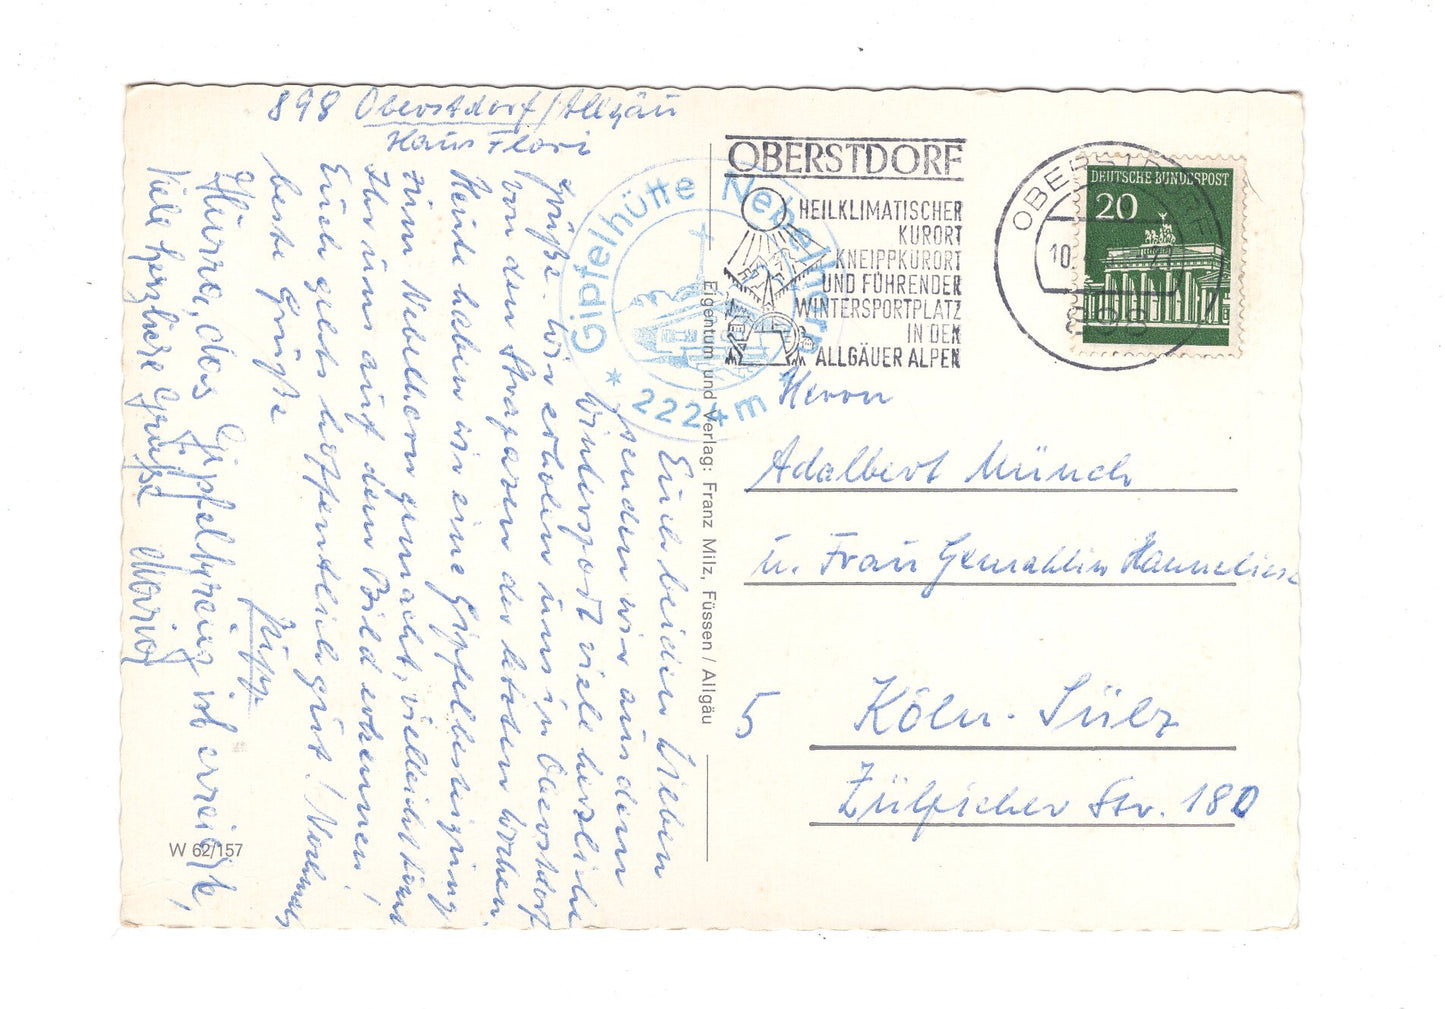 898 Oberstdorf/Allgäu
Haus Flori
Euch beiden Lieben
senden wir aus dem
Wintersport viele herzliche
Grüße. Wir erholen uns in Oberstdorf
von den Strapazen der letzten Wochen
Heute haben wir eine Gipfelbesteigung
zum Nebelhorn gemacht, vielleicht könnt
Ihr uns auf dem Bild erkennen!
Euch gehts hoffentlich gut! Nochmals
beste Grüße
Hurra, das Gipfelkreuz ist erreicht,
Viele herzliche Grüße
Gipfelhütte Nebelhorn
* 2224 m *
Eigentum und Verlag: Franz Milz, Füssen / Allgäu
W 62/157
OBERSTDORF
HEILKLIMATISCHER
KURORT
KNEIPPKURORT
UND FÜHRENDER
WINTERSPORTPLATZ
IN DEN
ALLGÄUER ALPEN
OBERSTDORF
10.
898
DEUTSCHE BUNDESPOST
20
Herrn
Adalbert Münch
u. Frau Gemahlin Hanneliese
5 Köln-Sülz
Zülpicher Str. 180